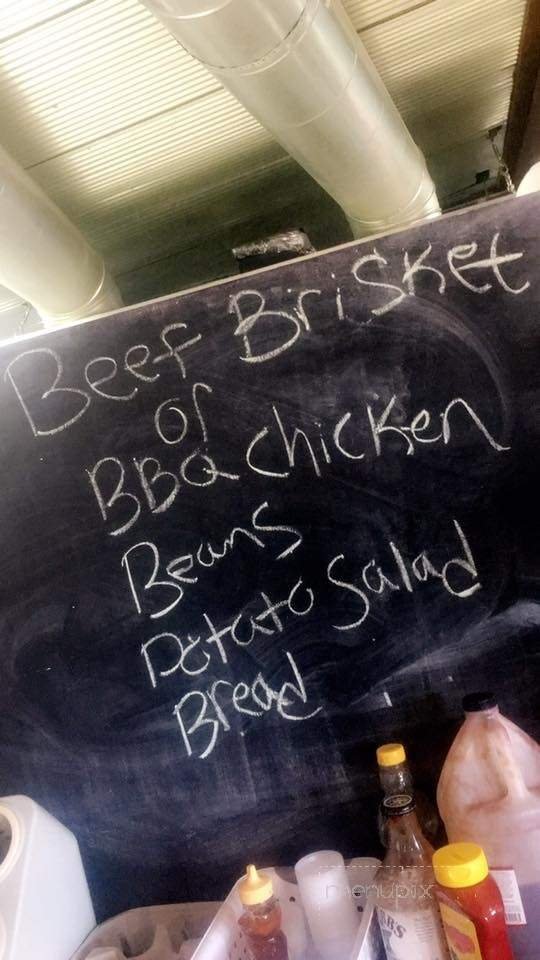 Beef Brisket
or
BBQ chicken
Beans
Potato Salad
Bread
menupix